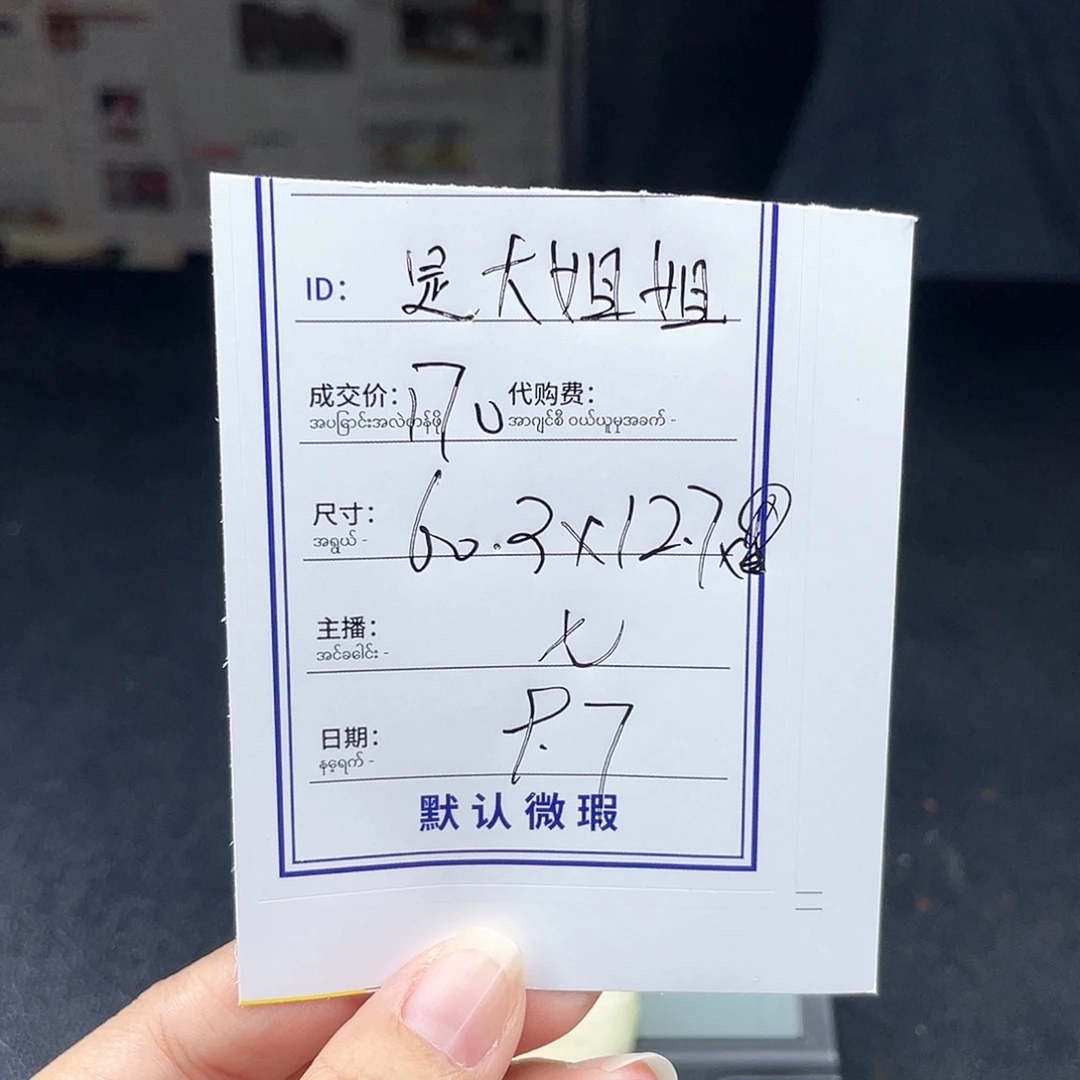 ID: 是大姐姐
成交价: 170 代购费:
အပြောင်းအလဲတန်ဖိုး အကျင့်စီ ဝယ်ယူမှုအခက် -
尺寸: 60.3×12.7×8
အရွယ် -
主播: 七
အင်ခေါင်း -
日期: 8.7
နေ့ရက် -
默认微瑕